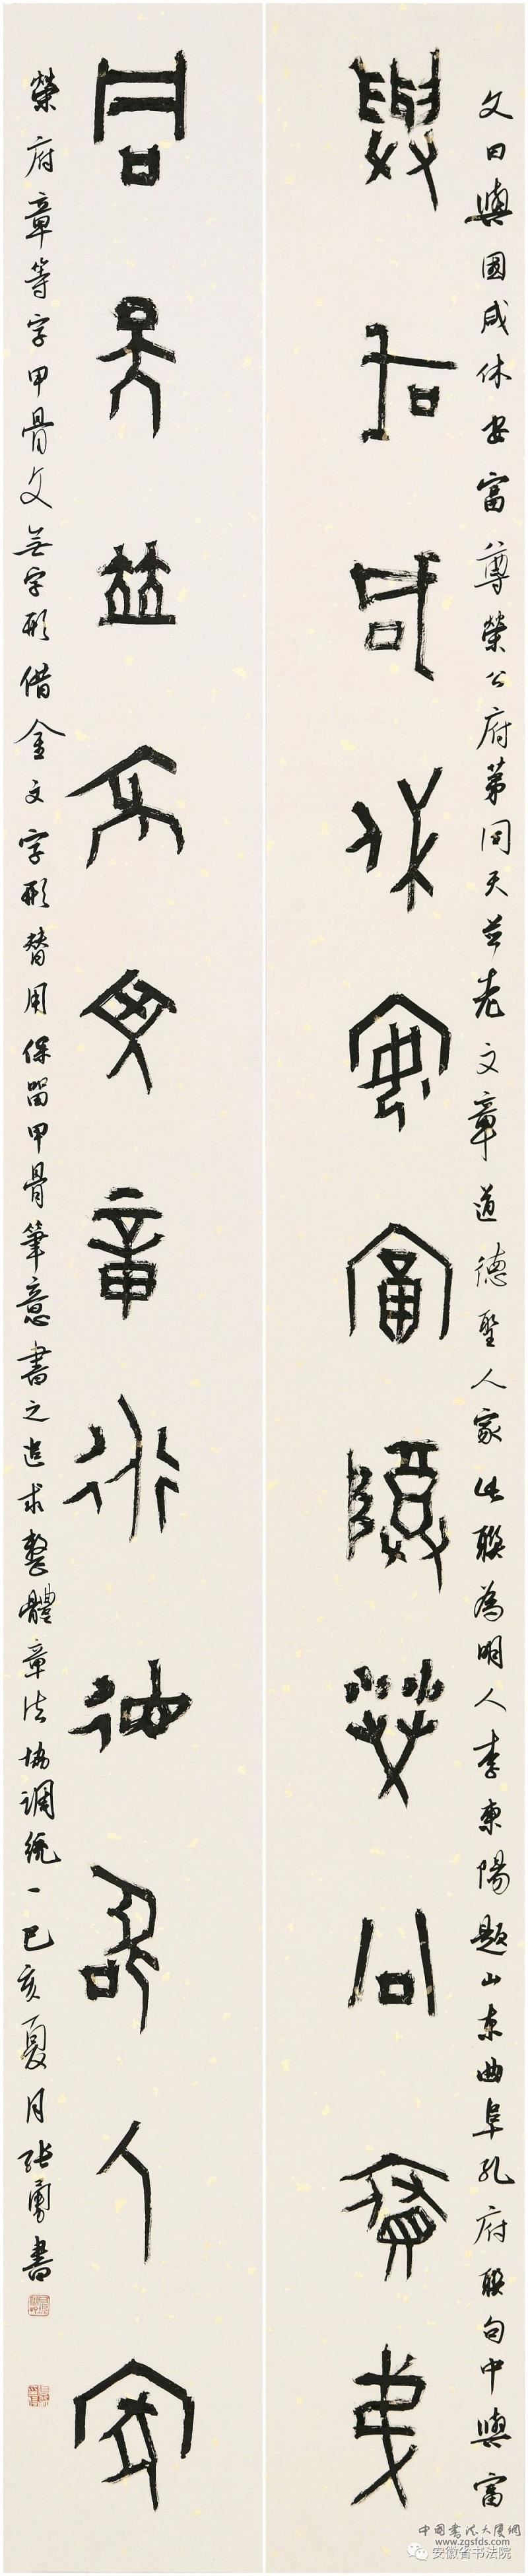 文曰與國咸休安富尊榮公府第同天並老文章道德聖人家此聯為明人李東陽題山東曲阜孔府聯句中與富
與國咸休安富尊榮公府第
同天並老文章道德聖人家
榮府章等字甲骨文無字形借金文字形替用保留甲骨筆意書之追求整體章法協調統一己亥夏月張勇書
中国书法大厦网
www.zgsfds.com
安徽省书法院